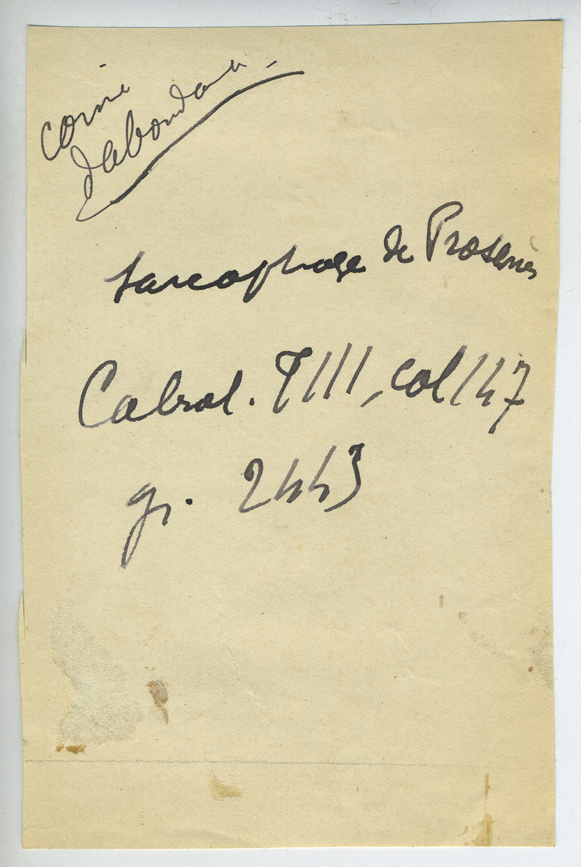 corne
d'abondance
Sarcophage de Prosenes
Cabrol. T III, col 147
gr. 2443